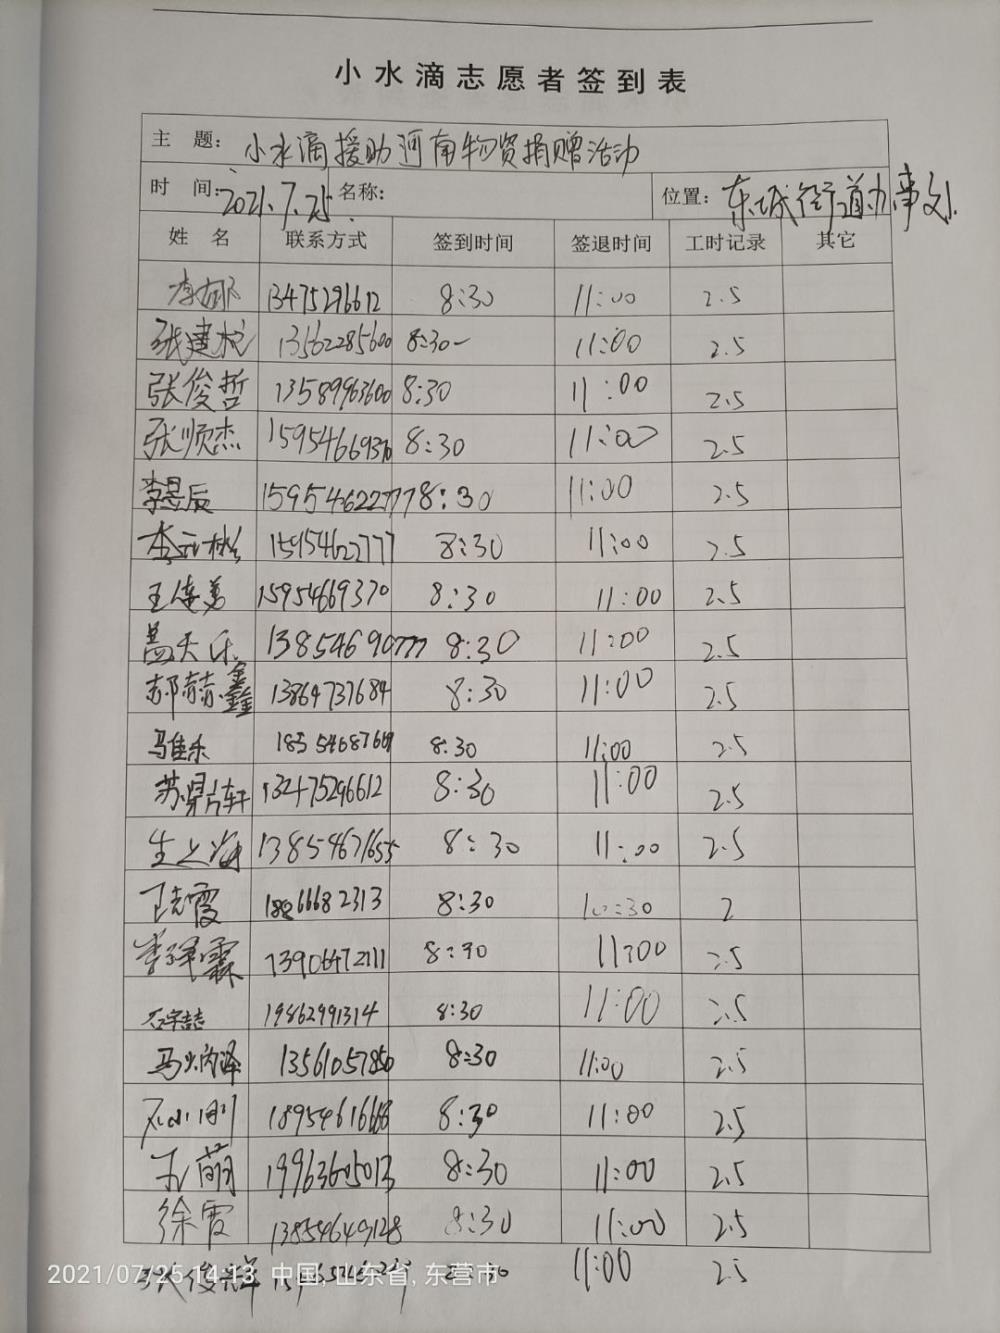 小水滴志愿者签到表
主 题: 小水滴援助河南物资捐赠活动
时 间: 2021.7.25 名称: 位置: 东城街道办事处
姓 名 联系方式 签到时间 签退时间 工时记录 其它
李郁 13475296612 8:30 11:00 2.5
张建 13562285600 8:30 11:00 2.5
张俊哲 13589963600 8:30 11:00 2.5
张顺杰 15954669370 8:30 11:00 2.5
李昱辰 15954622777 8:30 11:00 2.5
李 15954622777 8:30 11:00 2.5
王连勇 15954669370 8:30 11:00 2.5
盖天乐 13854690777 8:30 11:00 2.5
郝赫鑫 13864737684 8:30 11:00 2.5
马佳乐 8:30 11:00 2.5
苏鼎轩 13475296612 8:30 11:00 2.5
生 13854671655 8:30 11:00 2.5
霞 8:30 10:30 2
李 霖 13906472111 8:30 11:00 2.5
石宇喆 19862991314 8:30 11:00 2.5
马 泽 13561057850 8:30 11:00 2.5
石小刚 8:30 11:00 2.5
王萌 19963605013 8:30 11:00 2.5
徐霞 13854649128 8:30 11:00 2.5
张俊 11:00 2.5
2021/07/25 14:13 中国, 山东省, 东营市